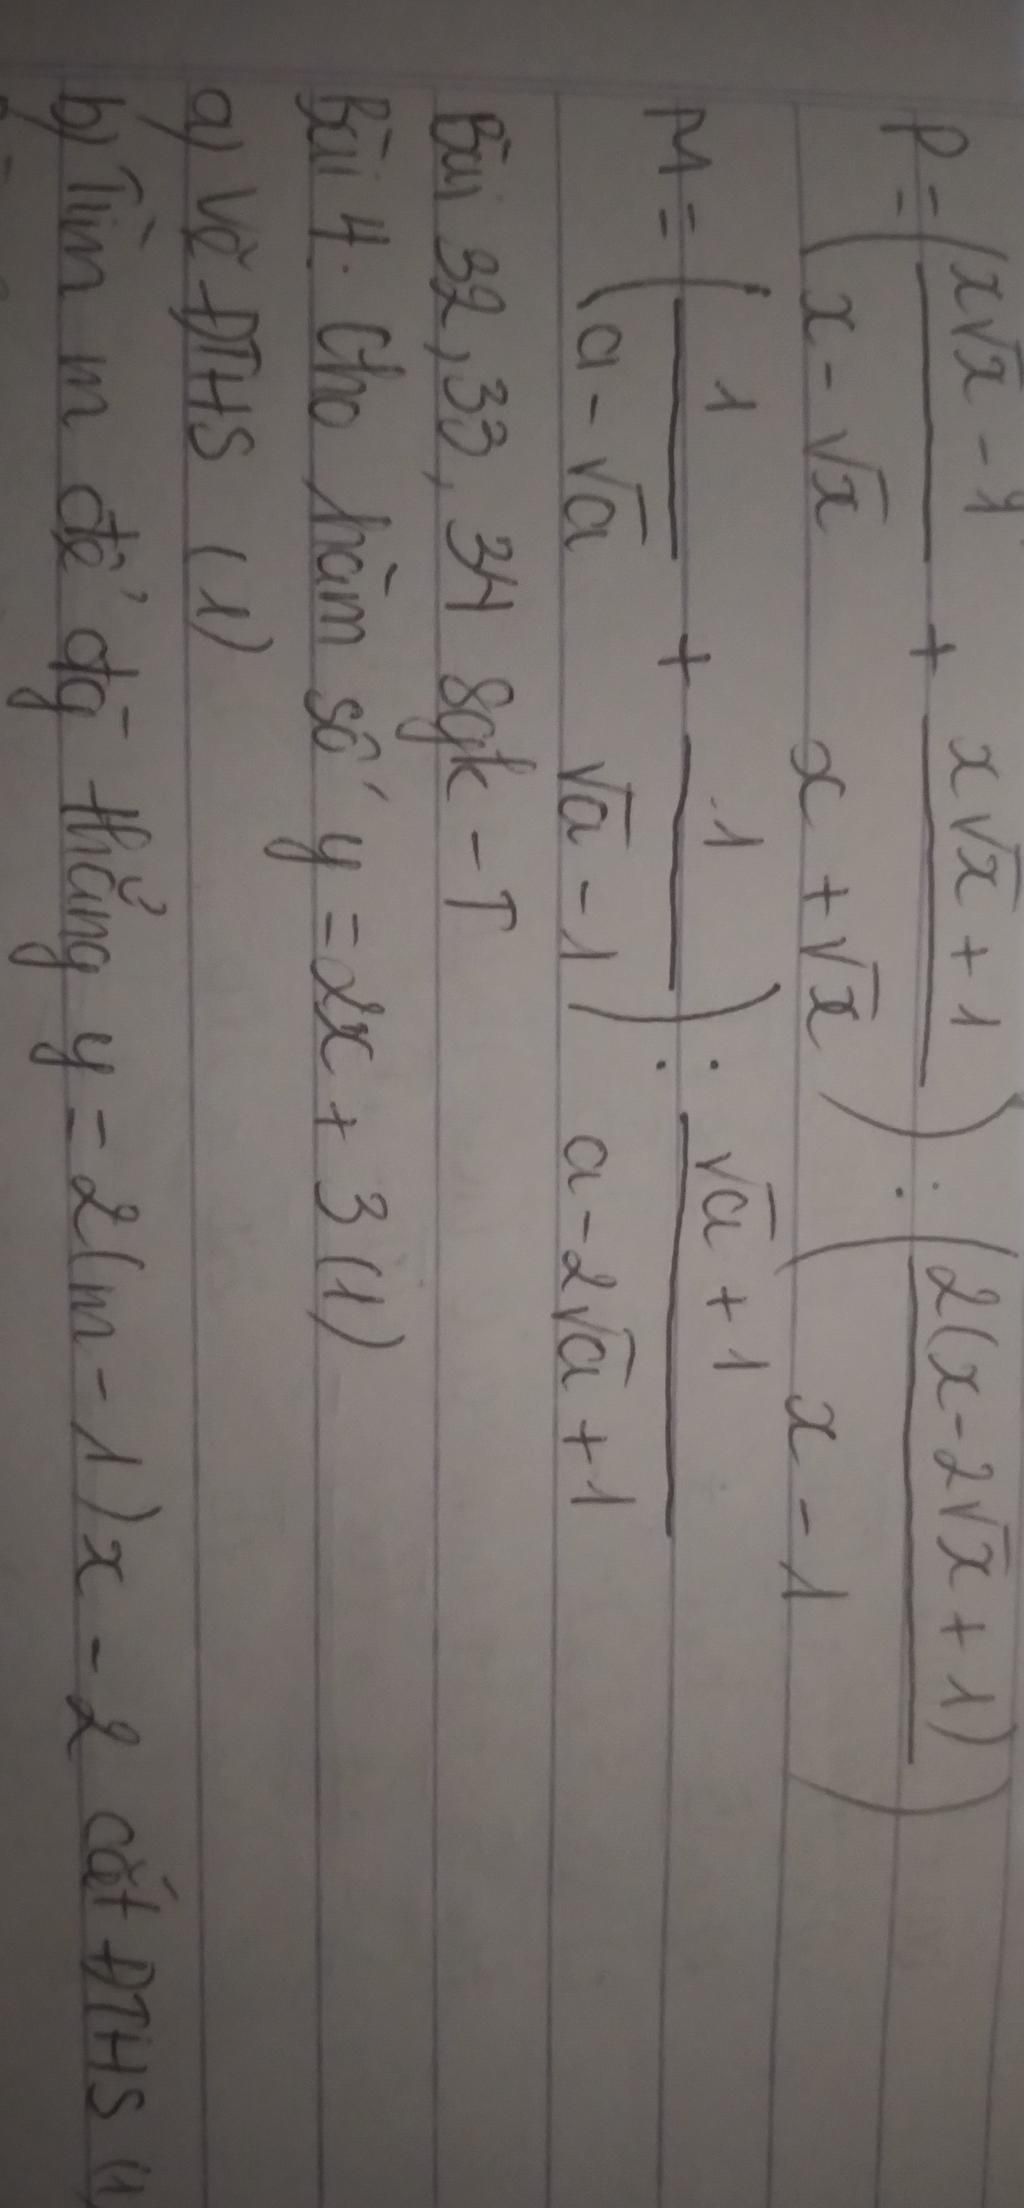 P = ( (x√x - 1)/(x - √x) + (x√x + 1)/(x + √x) ) : ( 2(x - 2√x + 1)/(x - 1) )
M = ( 1/(a - √a) + 1/(√a - 1) ) : (√a + 1)/(a - 2√a + 1)
Bài 32, 33, 34 Sgk - T
Bài 4. Cho hàm số y = 2x + 3 (1)
a) Vẽ ĐTHS (1)
b) Tìm m để đg thẳng y = 2(m - 1)x - 2 cắt ĐTHS (1